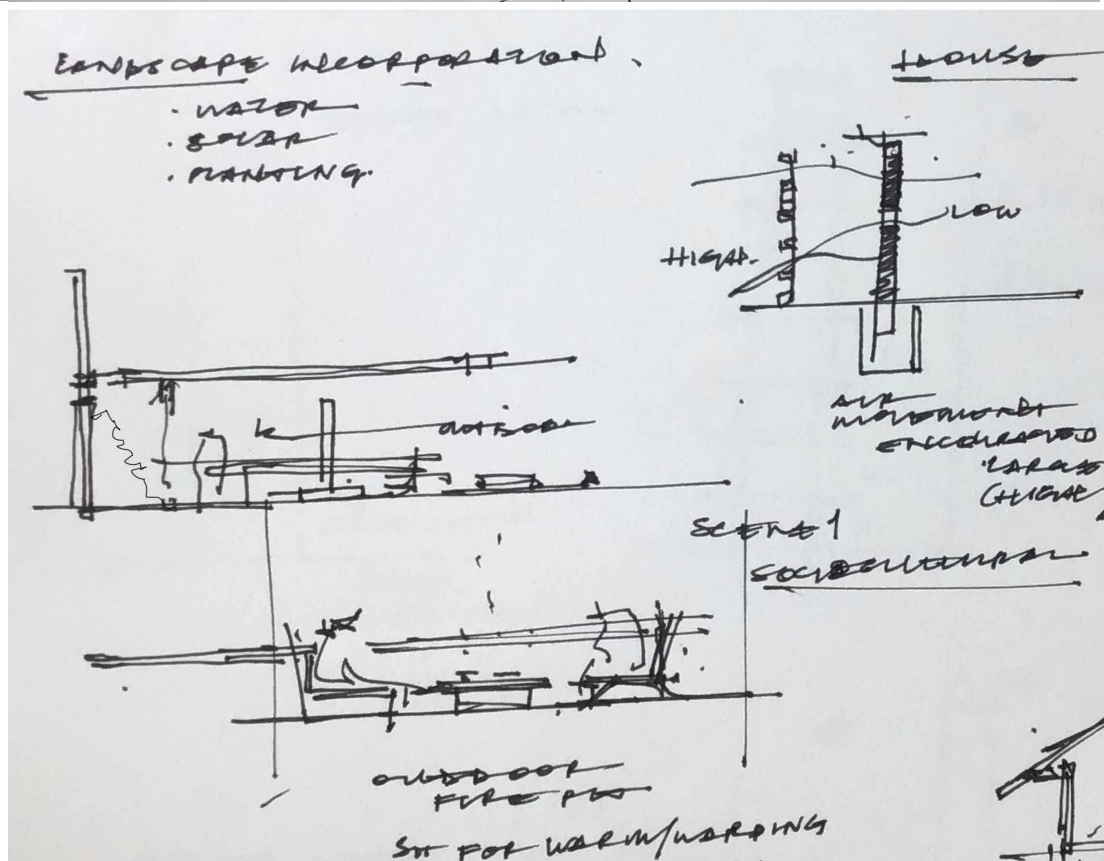 LANDSCAPE INCORPORATION.
· WATER
· SOLAR
· PLANTING.
HOUSE
LOW
HIGH.
AIR
MOVEMENT
ENCOURAGED
OUTDOOR
SCENE 1
SOCIOCULTURAL
OUTDOOR
FIRE PIT
FOR WARM/WARDING